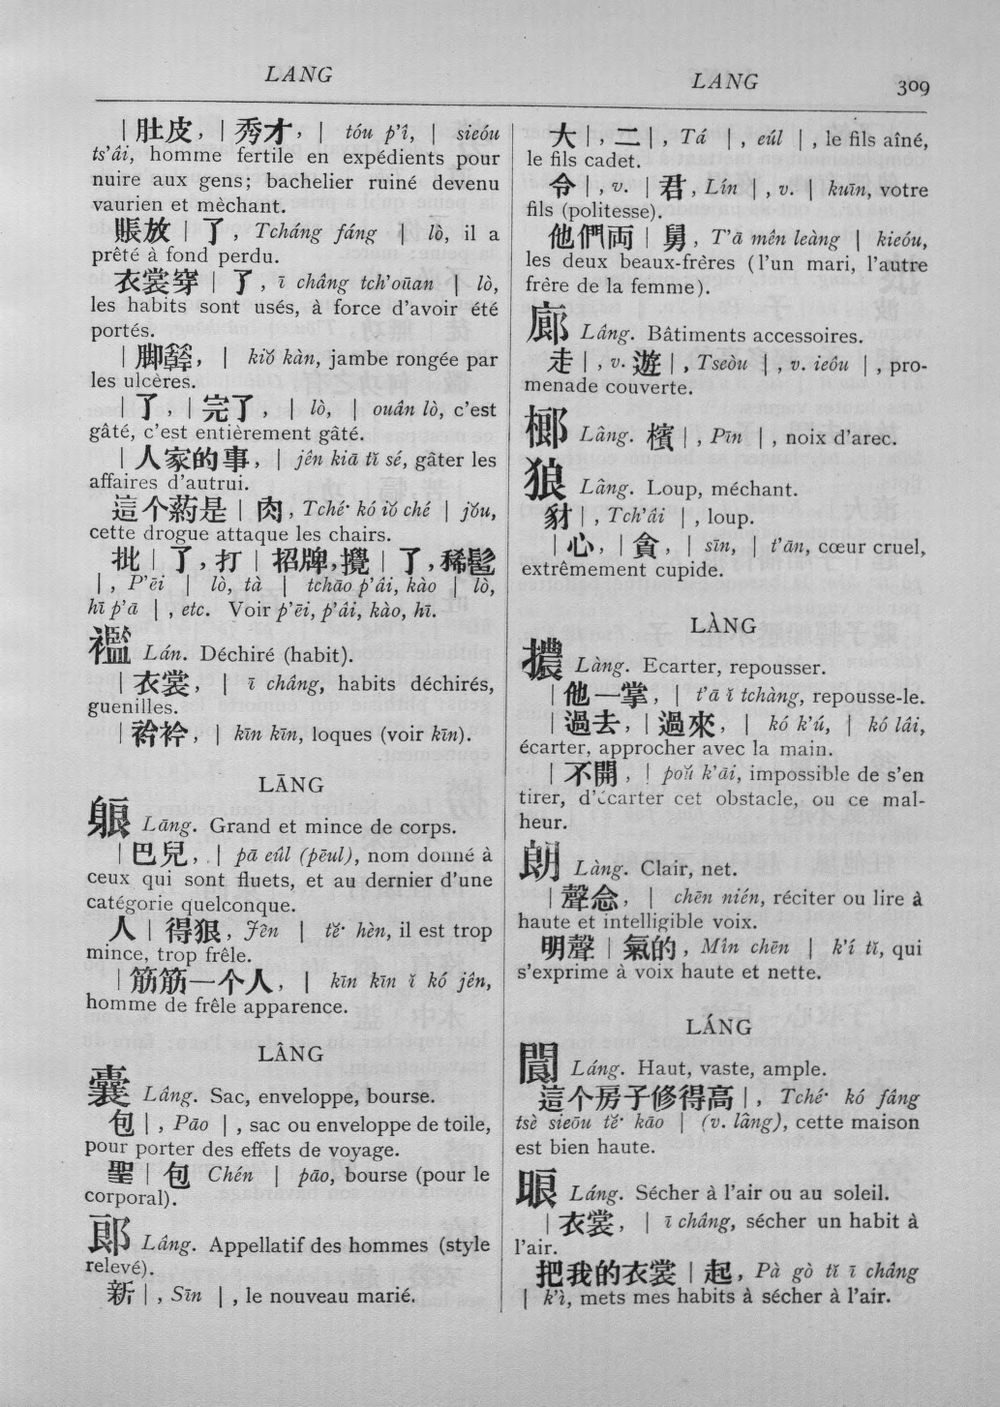 LANG
LANG
309
| 肚皮, | 秀才, | tóu p'î, | sieóu
ts'âi, homme fertile en expédients pour
nuire aux gens; bachelier ruiné devenu
vaurien et mèchant.
賬放 | 了, Tcháng fáng | lò, il a
prêté à fond perdu.
衣裳穿 | 了, ī châng tch'oūan | lò,
les habits sont usés, à force d'avoir été
portés.
| 脚, | kiŏ kàn, jambe rongée par
les ulcères.
| 了, | 完了, | lò, | ouân lò, c'est
gâté, c'est entièrement gâté.
| 人家的事, | jên kiā tĭ sé, gâter les
affaires d'autrui.
這个葯是 | 肉, Tché· kó iŏ ché | jŏu,
cette drogue attaque les chairs.
批 | 了, 打 | 招牌, 攪 | 了, 稀髱
| , P'ēi | lò, tà | tchāo p'âi, kào | lò,
hī p'ā | , etc. Voir p'ēi, p'âi, kào, hī.
襤 Lán. Déchiré (habit).
| 衣裳, | ī châng, habits déchirés,
guenilles.
| 衿衿, | kīn kīn, loques (voir kīn).
LĀNG
躴 Lāng. Grand et mince de corps.
| 巴兒, | pā eûl (pēul), nom donné à
ceux qui sont fluets, et au dernier d'une
catégorie quelconque.
人 | 得狠, Jên | tĕ· hèn, il est trop
mince, trop frêle.
| 筋筋一个人, | kīn kīn ĭ kó jên,
homme de frêle apparence.
LÂNG
囊 Lâng. Sac, enveloppe, bourse.
包 | , Pāo | , sac ou enveloppe de toile,
pour porter des effets de voyage.
聖 | 包 Chén | pāo, bourse (pour le
corporal).
郎 Lâng. Appellatif des hommes (style
relevé).
新 | , Sīn | , le nouveau marié.
大 | , 二 | , Tá | , eúl | , le fils aîné,
le fils cadet.
令 | , v. | 君, Lín | , v. | kuīn, votre
fils (politesse).
他們両 | 舅, T'ā mên leàng | kieóu,
les deux beaux-frères (l'un mari, l'autre
frère de la femme).
廊 Lâng. Bâtiments accessoires.
走 | , v. 遊 | , Tseòu | , v. ieôu | , pro-
menade couverte.
榔 Lâng. 檳 | , Pīn | , noix d'arec.
狼 Lâng. Loup, méchant.
豺 | , Tch'âi | , loup.
| 心, | 貪, | sīn, | t'ān, cœur cruel,
extrêmement cupide.
LÀNG
擃 Làng. Ecarter, repousser.
| 他一掌, | t'ā ĭ tchàng, repousse-le.
| 過去, | 過來, | kó k'ú, | kó lâi,
écarter, approcher avec la main.
| 不開, | poŭ k'āi, impossible de s'en
tirer, d'écarter cet obstacle, ou ce mal-
heur.
朗 Làng. Clair, net.
| 聲念, | chēn nién, réciter ou lire à
haute et intelligible voix.
明聲 | 氣的, Mîn chēn | k'í tĭ, qui
s'exprime à voix haute et nette.
LÁNG
閬 Láng. Haut, vaste, ample.
這个房子修得高 | , Tché· kó fáng
tsè sieōu tĕ· kāo | (v. lâng), cette maison
est bien haute.
眼 Láng. Sécher à l'air ou au soleil.
| 衣裳, | ī châng, sécher un habit à
l'air.
把我的衣裳 | 起, Pà gò tĭ ī châng
| k'ì, mets mes habits à sécher à l'air.